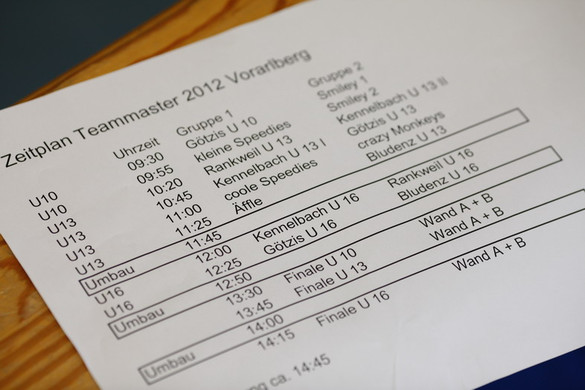 Zeitplan Teammaster 2012 Vorarlberg
Uhrzeit Gruppe 1 Gruppe 2
U10 09:30 Götzis U 10 Smiley 1
U10 09:55 kleine Speedies Smiley 2
U13 10:20 Rankweil U 13 Kennelbach U 13 II
U13 10:45 Kennelbach U 13 I Götzis U 13
U13 11:00 coole Speedies crazy Monkeys
U13 11:25 Äffle Bludenz U 13
Umbau 11:45
U16 12:00 Kennelbach U 16 Rankweil U 16
U16 12:25 Götzis U 16 Bludenz U 16
Umbau 12:50
13:30 Finale U 10 Wand A + B
13:45 Finale U 13 Wand A + B
Umbau 14:00
14:15 Finale U 16 Wand A + B
ca. 14:45